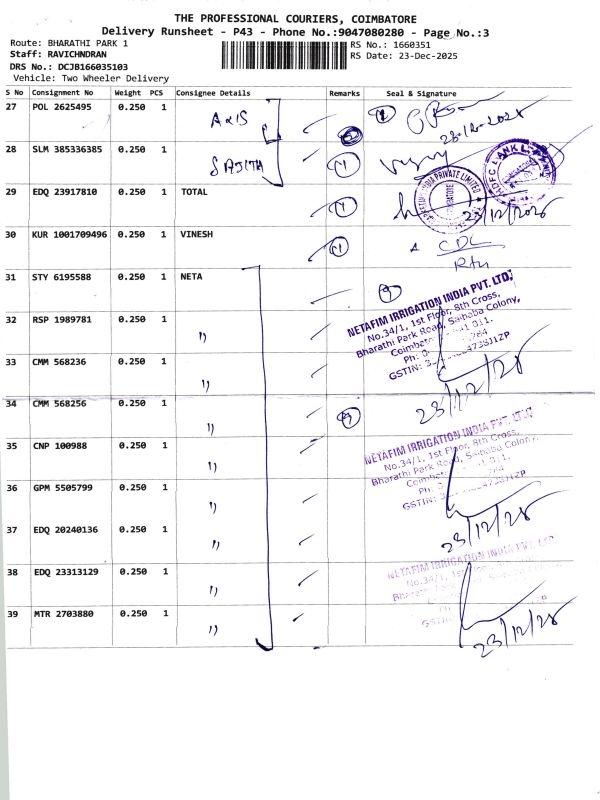 THE PROFESSIONAL COURIERS, COIMBATORE
Delivery Runsheet - P43 - Phone No.:9047080280 - Page No.:3
Route: BHARATHI PARK 1
RS No.: 1660351
Staff: RAVICHNDRAN
RS Date: 23-Dec-2025
DRS No.: DCJB166035103
Vehicle: Two Wheeler Delivery
S No Consignment No Weight PCS Consignee Details Remarks Seal & Signature
27 POL 2625495 0.250 1 AXIS
28 SLM 385336385 0.250 1 SAJITA (1)
29 EDQ 23917810 0.250 1 TOTAL (1) 23/12/2025
30 KUR 1001709496 0.250 1 VINESH (1) CDL
31 STY 6195588 0.250 1 NETA
NETAFIM IRRIGATION INDIA PVT. LTD.
No.34/1, 1st Floor, 8th Cross,
Bharathi Park Road, Saibaba Colony,
32 RSP 1989781 0.250 1 "
33 CMM 568236 0.250 1 "
23/12/25
34 CMM 568256 0.250 1 "
NETAFIM IRRIGATION INDIA PVT. LTD.
No.34/1, 1st Floor, 8th Cross,
Bharathi Park Road, Saibaba Colony,
35 CNP 100988 0.250 1 "
36 GPM 5505799 0.250 1 "
23/12/25
37 EDQ 20240136 0.250 1 "
38 EDQ 23313129 0.250 1 "
NETAFIM IRRIGATION INDIA PVT.
No.34/1, 1st
39 MTR 2703880 0.250 1 "
23/12/25